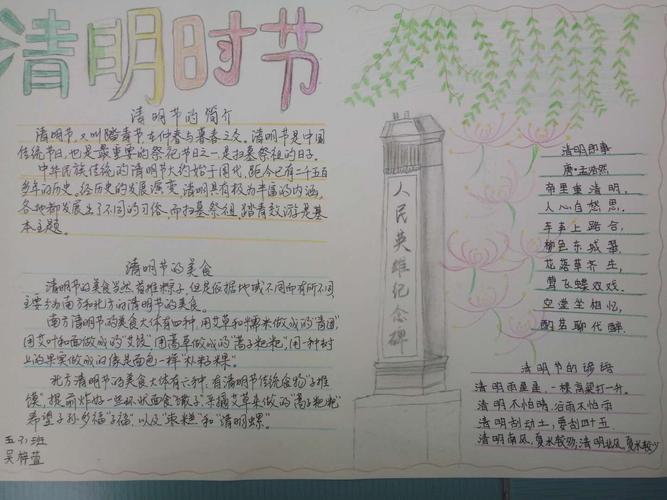 清明时节
清明节的简介
清明节,又叫踏青节,在仲春与暮春之交。清明节是中国
传统节日,也是最重要的祭祀节日之一,是扫墓祭祖的日子。
中华民族传统的清明节大约始于周代,距今已有二千五百
多年的历史,经历史的发展演变,清明具有极为丰富的内涵,
各地都发展出了不同的习俗,而扫墓祭祖,踏青郊游是基
本主题。
清明节的美食
清明节的美食当然首推粽子,但是依据地域不同而有所不同
主要分为南方和北方的清明节的美食。
南方清明节的美食大体有四种,用艾草和糯米做成的"青团",
用艾叶和面做成的"艾饺",用蒿草做成的"蒿子粑粑",用一种树
上的果实做成的像是面包一样"朴籽粿"
北方清明节的美食大体有六种,有清明节传统食物"子推
馍",提前炸好一些环状面食"馓子",采摘艾草来做的"蒿子粑粑"
希望子孙多福"子福",以及"枣糕"和"清明螺"
五(3)班
吴梓萱
人民英雄纪念碑
清明即事
唐·孟浩然
帝里重清明,
人心自愁思.
车声上路合,
柳色东城翠
花落草齐生,
莺飞蝶双戏.
空堂坐相忆,
酌茗聊代醉.
清明节的谚语
清明雨星星,一棵高粱打一升.
清明不怕晴,谷雨不怕雨
清明刮动土,要刮四十五
清明南风,夏水较多;清明北风,夏水较少